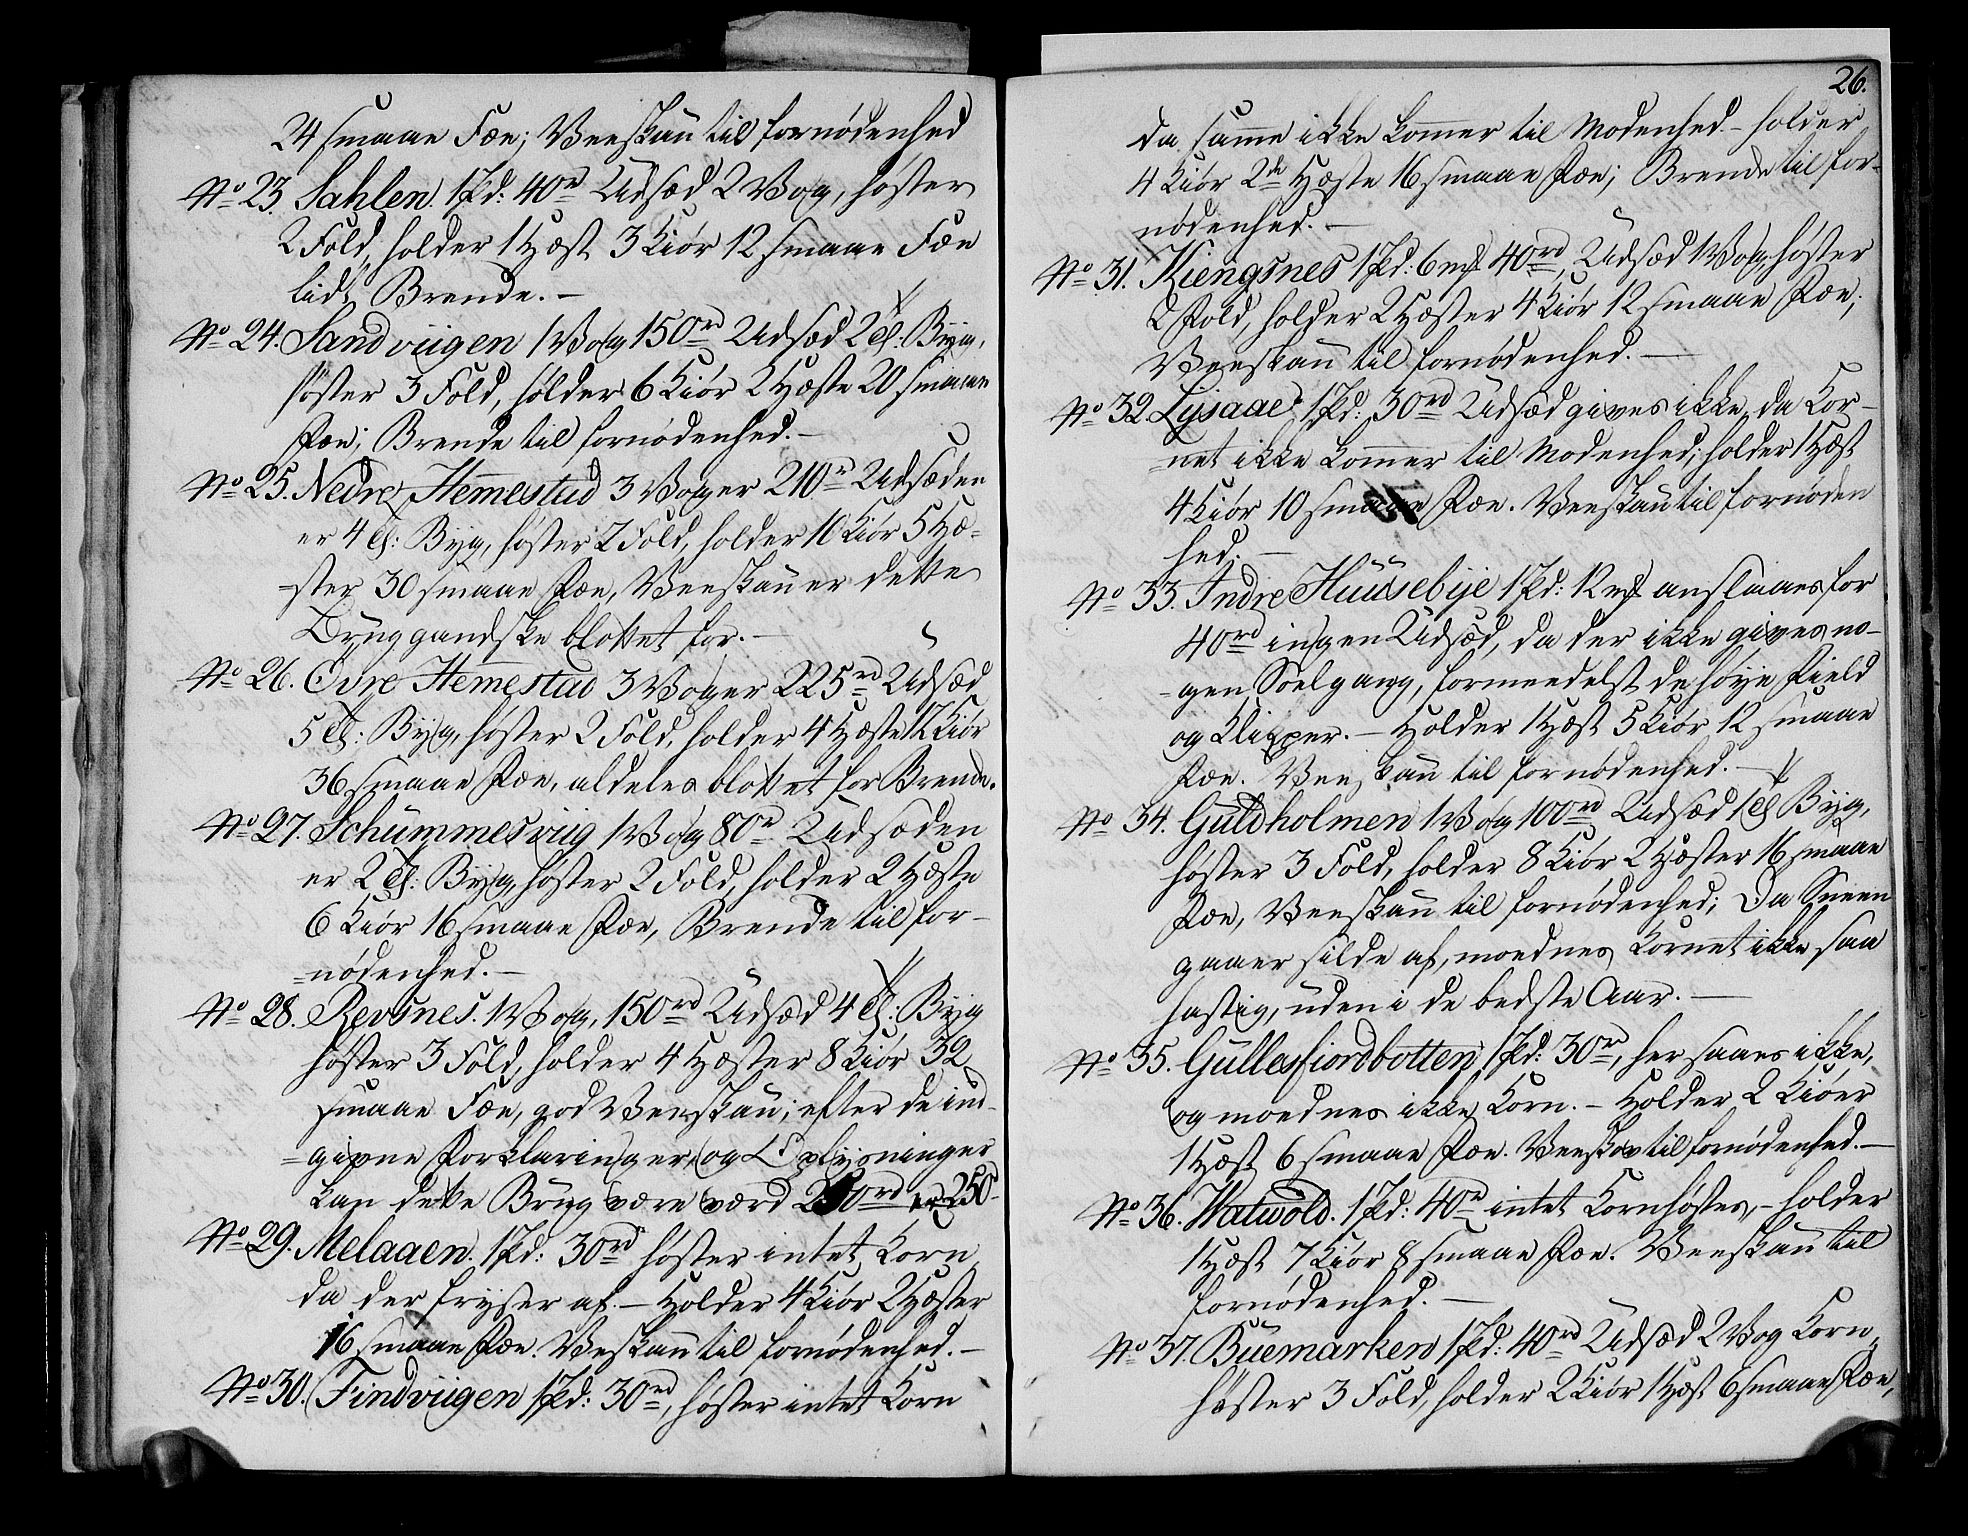 24 smaae Fæe; Veeskau til fornødenhed
No 23. Sahlen. 1 Pd: 40rd Udsæd 2 Vog, høster
2 Fold, holder 1 Hæst 3 Kiør 12 smaae Fæe
lidt Brende. –
No 24. Sandviigen 1 Vog 150rd Udsæd 2 Td: Byg,
høster 3 Fold, holder 6 Kiør 2 Hæste 20 smaae
Fæe; Brende til fornødenhed. –
No 25. Nedre Hemmestad 3 Voger 210rd Udsæden
er 4 Td: Byg, høster 2 Fold, holder 10 Kiør 5 Hæ-
-ster 30 smaae Fæe, Veeskau er dette
Brug gandske blottet for. –
No 26. Øvre Hemmestad 3 Voger 225rd Udsæd
5 Td: Byg, høster 2 Fold, holder 4 Hæste 12 Kiør
36 smaae Fæe, aldeles blottet for Brende.
No 27. Schummesviig 1 Vog 80rd Udsæden
er 2 Td: Byg, høster 2 Fold, holder 2 Hæste
6 Kiør 16 smaae Fæe, Brende til for-
-nødenhed. –
No 28. Revsnes. 1 Vog, 150rd Udsæd 4 Td: Byg
høster 3 Fold, holder 4 Hæster 8 Kiør 32
smaae Fæe, god Veeskau; efter de ind-
-givne Forklaringer og Oplysninger
kan dette Brug være værd 250rd 250-
No 29. Melaaen. 1 Pd: 30rd høster intet Korn
da der fryser af. – Holder 4 Kiør 2 Hæster
16 smaae Fæe. Veskau til fornødenhed. –
No 30. Findviigen 1 Pd: 30rd, høster intet Korn
26.
da samme ikke kommer til Modenhed – holder
4 Kiør 2de Hæste 16 smaae Fæe; Brende til for-
nødenhed. –
No 31. Kiengsnes 1 Pd: 6 mk 40rd, Udsæd 1 Vog, høster
2 Fold, holder 2 Hæster 4 Kiør 12 smaae Fæe;
Veeskau til fornødenhed. –
No 32. Lysaae 1 Pd: 30rd Udsæd gives ikke, da Kor-
-net ikke kommer til Modenhed; holder 1 Hæst
4 Kiør 10 smaae Fæe. Veeskau til fornøden
hed. –
No 33. Indre Huusebye 1 Pd: 12 mk anslaaes for
40rd ingen Udsæd, da der ikke gives no-
-gen Soelgang, formedelst de høye Field
og Klipper. – Holder 1 Hæst 5 Kiør 12 smaae
Fæe. Veeskau til fornødenhed. –
No 34. Guldholmen 1 Vog 100rd Udsæd 1 Td Byg,
høster 3 Fold, holder 8 Kiør 2 Hæster 16 smaae
Fæe, Veeskau til fornødenhed; Da Sneen
gaaer silde af, moednes Kornet ikke saa
hastig, uden i de bedste Aar. –
No 35. Gullesfiordbotten 1 Pd: 30rd, her saaes ikke,
og moednes ikke Korn. – Holder 2 Kiøer
1 Hæst 6 smaae Fæe. Veeskov til fornødenhed. –
No 36. Watvold. 1 Pd: 40rd intet Korn høstes, – holder
1 Hæst 7 Kiør 8 smaae Fæe. Veeskau til
fornødenhed. –
No 37. Buemarken 1 Pd: 40rd Udsæd 2 Vog Korn,
høster 3 Fold, holder 2 Kiør 1 Hæst 6 smaae Fæe,